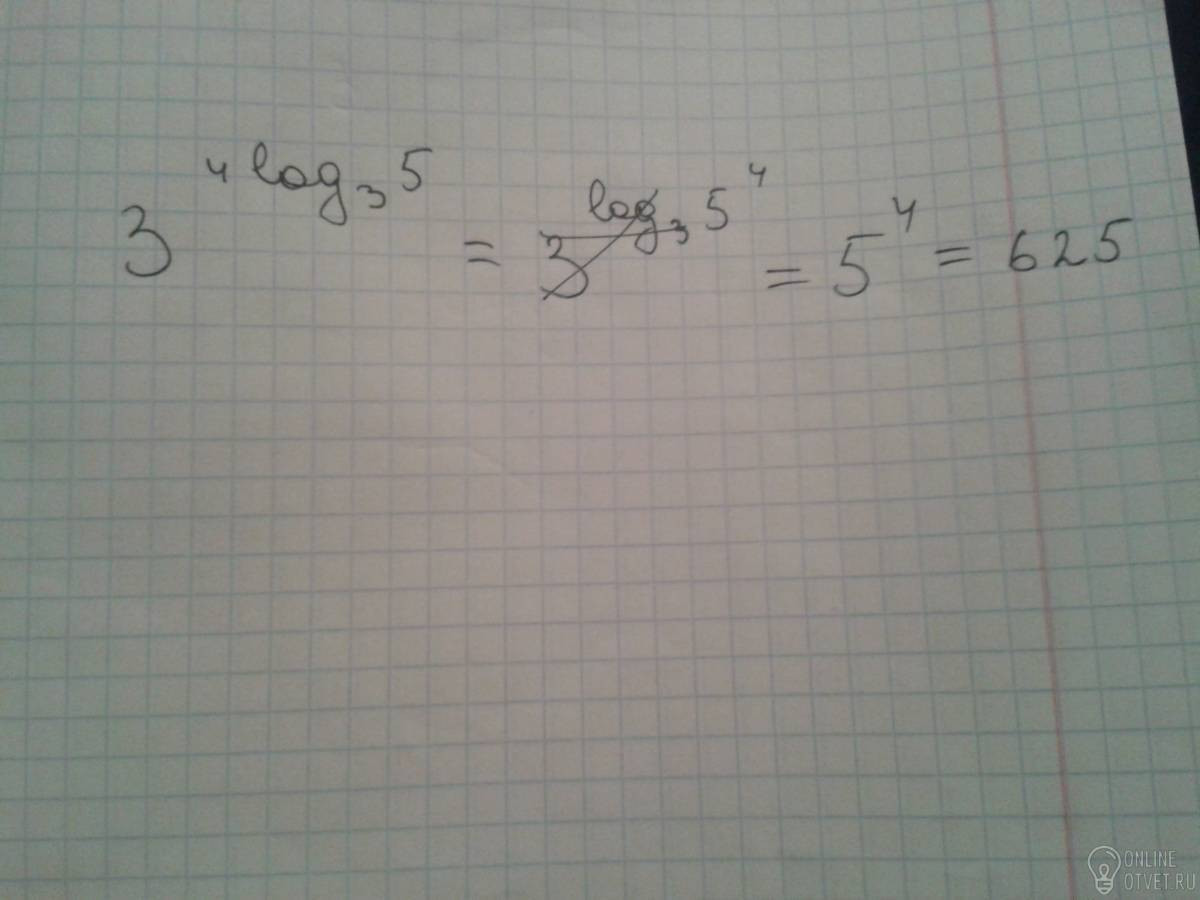 3^{4 log_3 5} = 3^{log_3 5^4} = 5^4 = 625
ONLINE
OTVET.RU